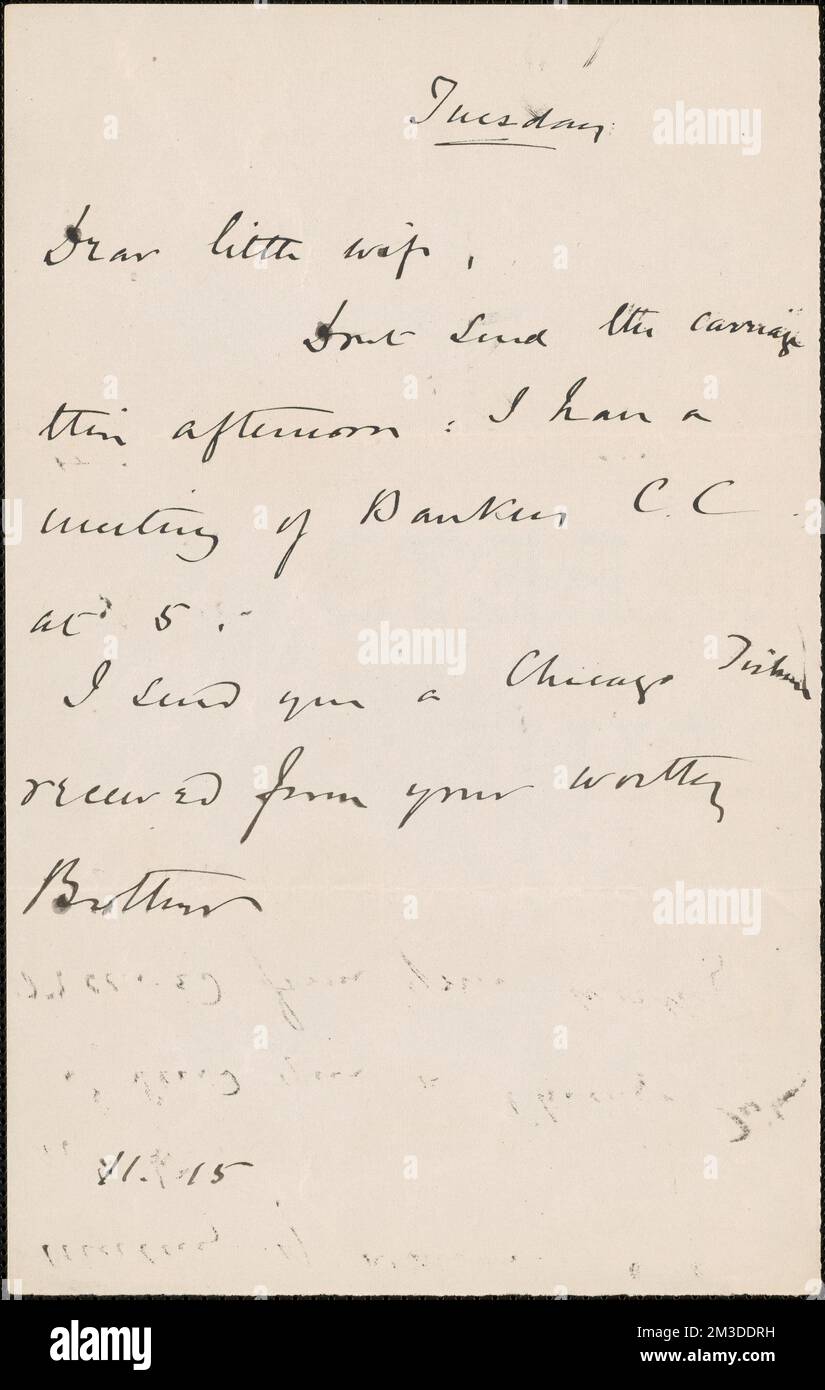 Tuesday
Dear little wife,
Dont send the carriage
this afternoon: I have a
meeting of Bankers C.C.
at 5.
I send you a Chicago Tribune
received from your worthy
Brother
11.15
alamy
Image ID: 2M3DDRH
www.alamy.com